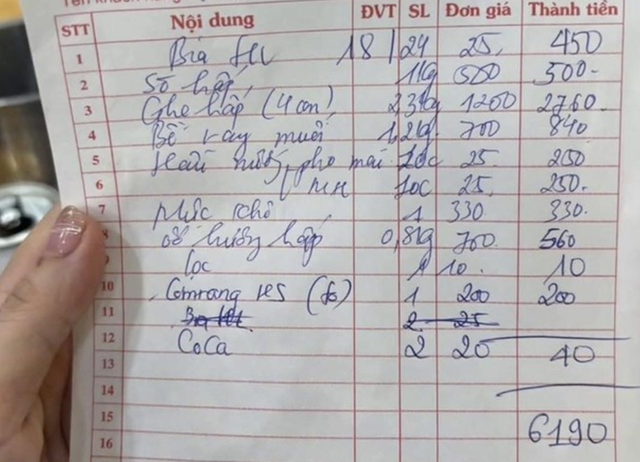 STT Nội dung ĐVT SL Đơn giá Thành tiền
1 Bia 18 | 24 25. 450
2 Sò hấp 1kg 500 500-
3 Ghẹ hấp (4 con) 2,3kg 1200 2760-
4 Bề ray muối 1,2kg 700 840
5 Hàu nướng pho mai 10c 25. 250
6 MH 10c 25. 250.
7 Mực khô 1 330 330.
8 ốc hương hấp 0,8kg 700 560
9 lọc 1 10. 10
10 Comrang HS (to) 1 200 200
11 2 25
12 CoCa 2 20 40
13
14
15 6190
16